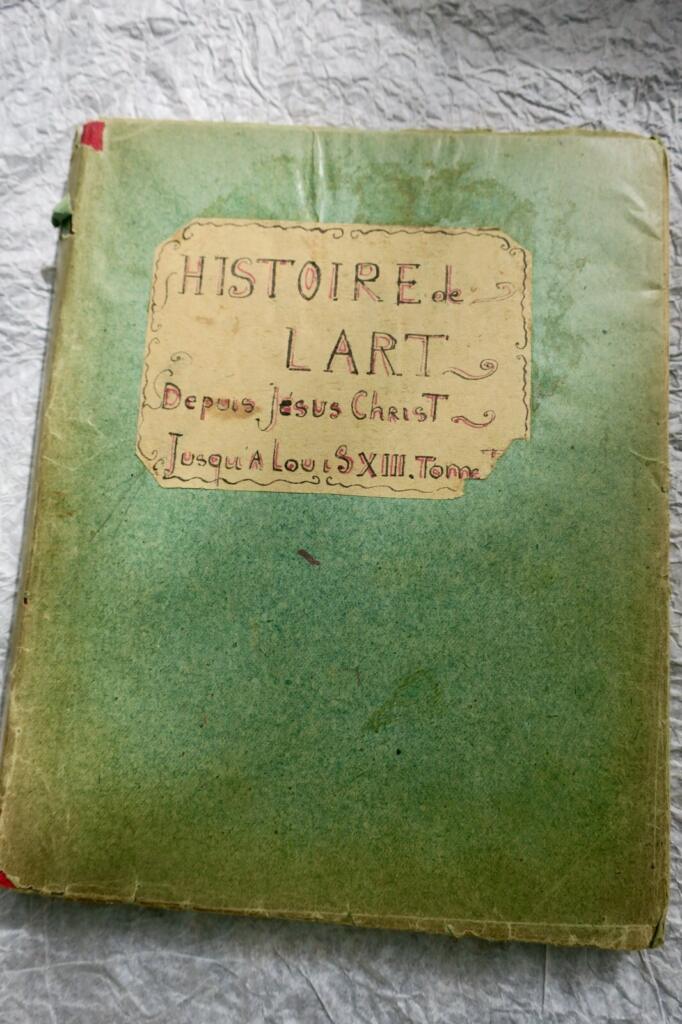 HISTOIRE de
LART
Depuis Jésus Christ
Jusqu'A LouiS XIII. Tome